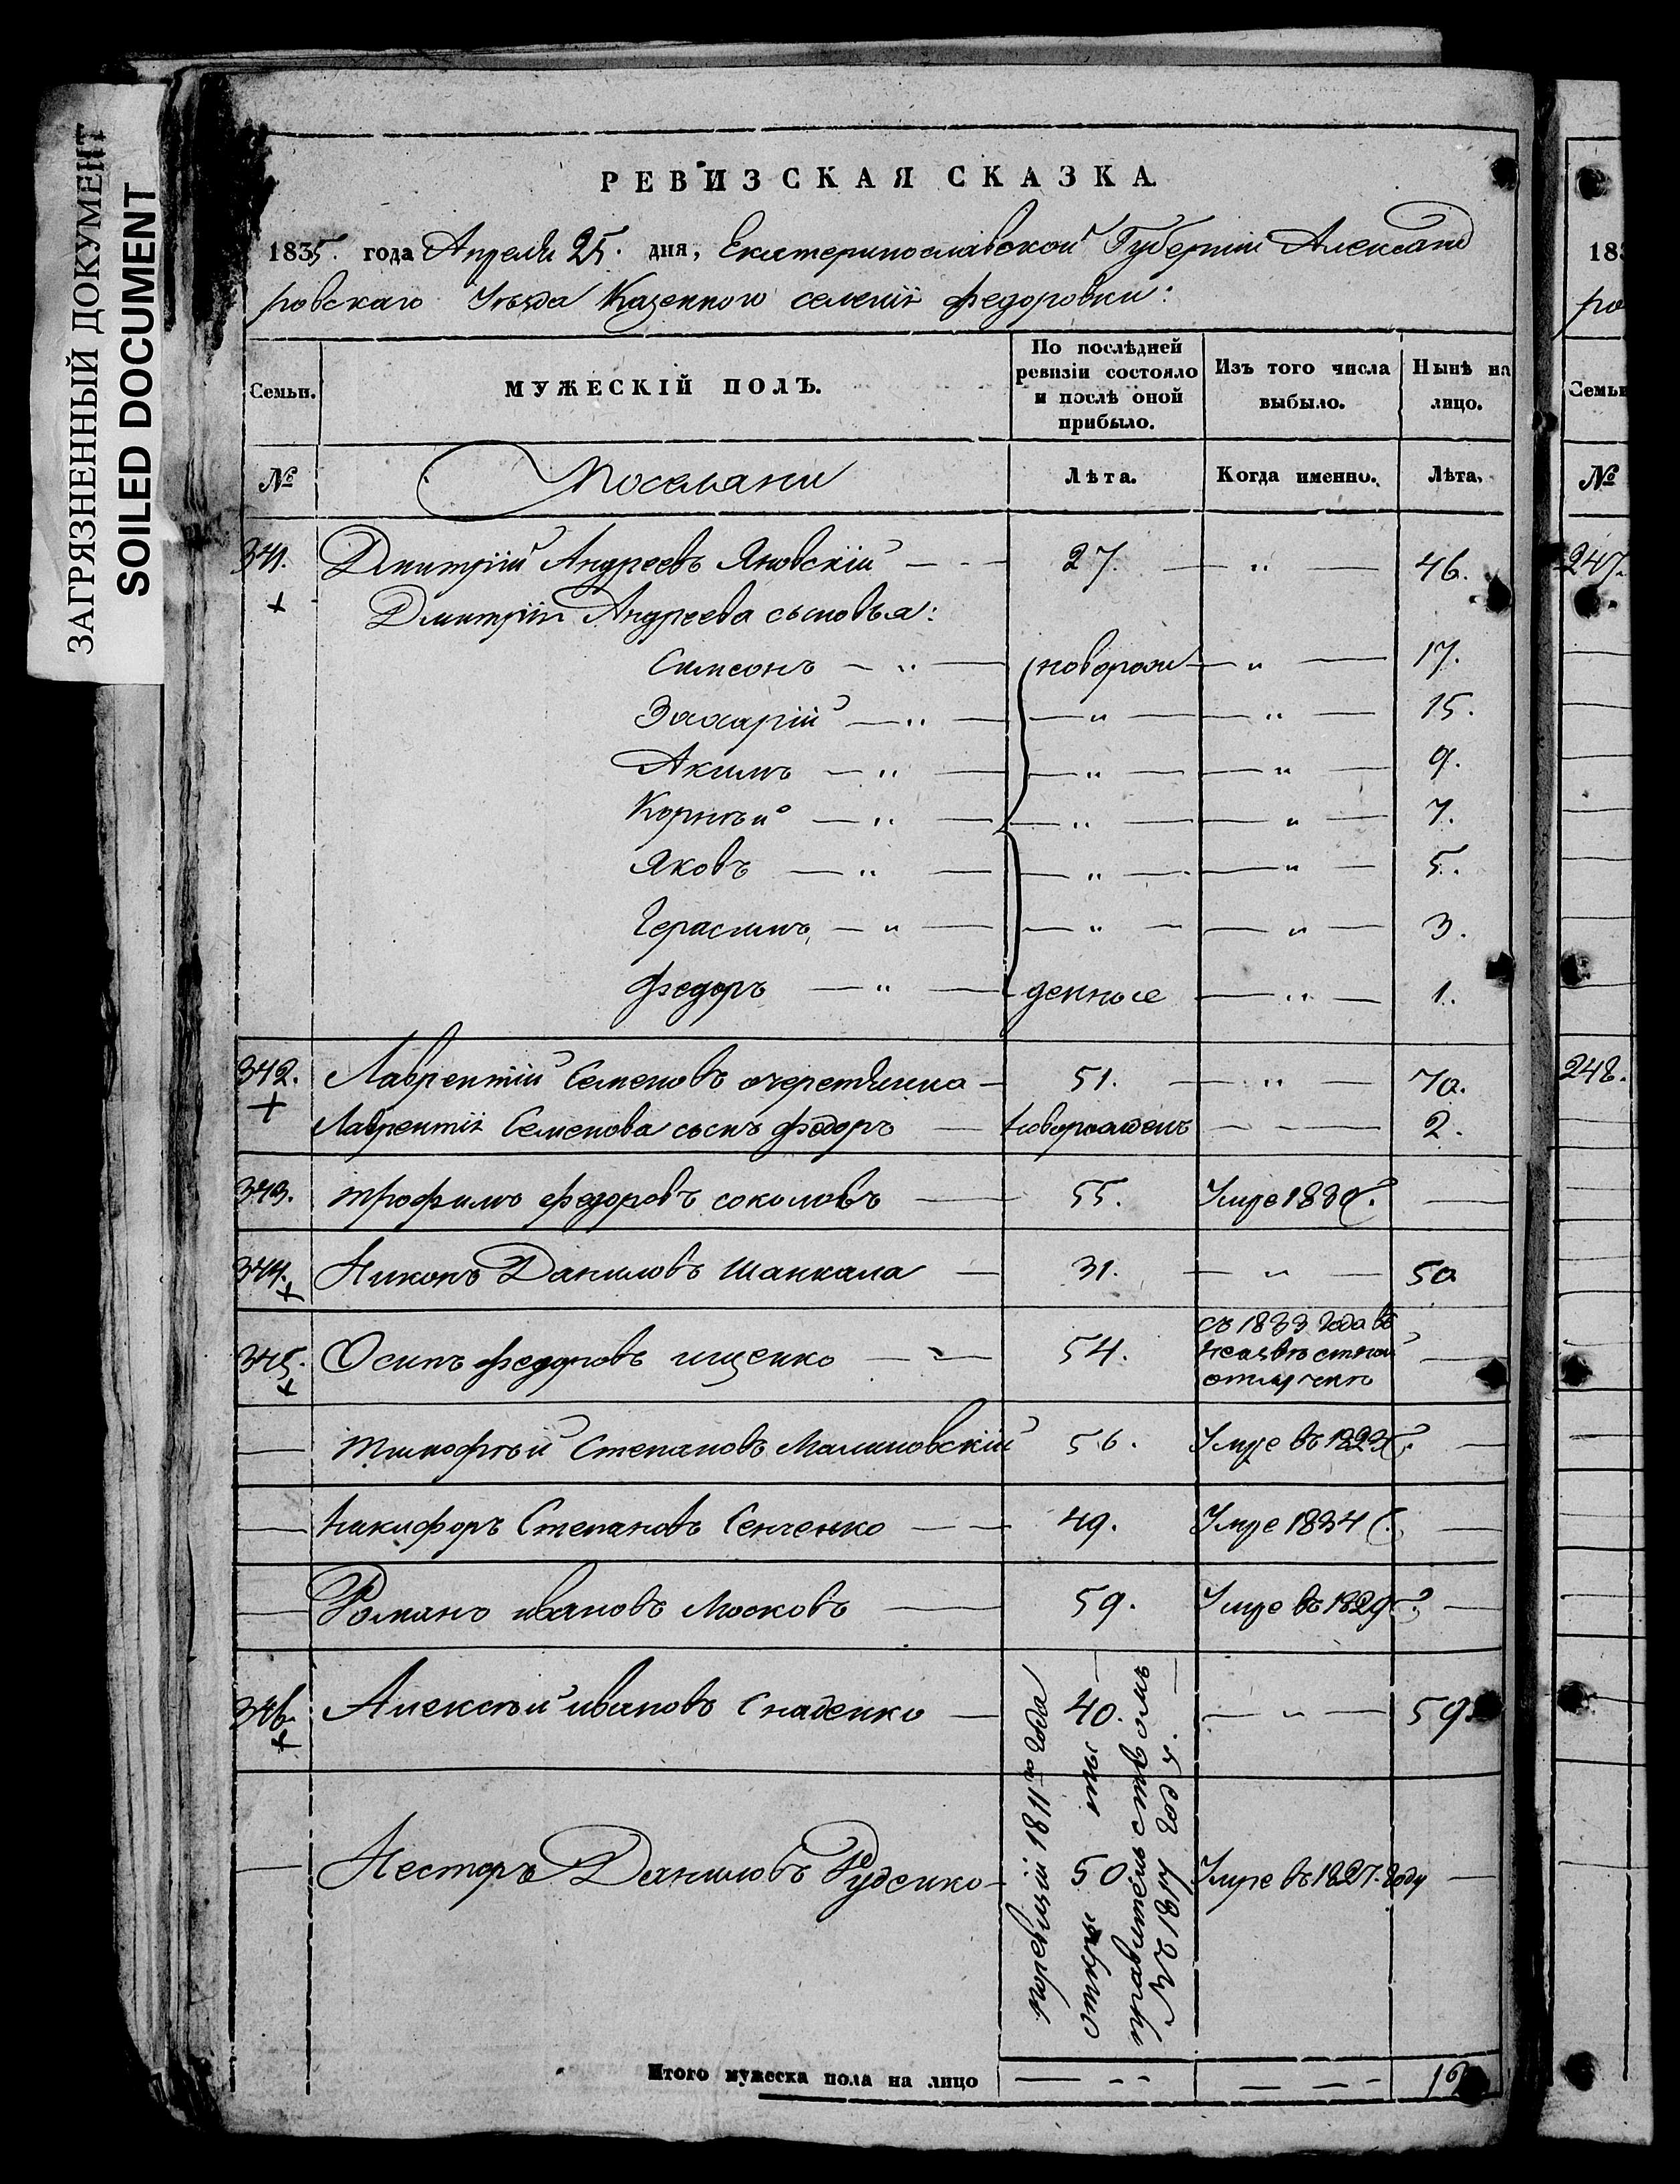 ЗАГРЯЗНЕННЫЙ ДОКУМЕНТ
SOILED DOCUMENT
РЕВИЗСКАЯ СКАЗКА
1835. года Апреля 25. дня, Екатеринославской Губерніи Александ
ровскаго Уезда Казенного селенія федоровки:
Семьи. МУЖЕСКІЙ ПОЛЪ. По послѣдней ревизіи состояло и послѣ оной прибыло. Изъ того числа выбыло. Нынѣ на лицо.
№ Поселяни Лѣта. Когда именно. Лѣта.
341. Дмитрій Андреевъ Яновскій — 27. — " — 46.
Дмитрія Андреева сыновья:
Симеонъ — " — новорож — " — 17.
Захарій — " — " — " — 15.
Акимъ — " — " — " — 9.
Корнѣй — " — " — " — 7.
Яковъ — " — " — " — 5.
Герасимъ — " — " — " — 3.
федоръ — " — денные — " — 1.
342. Лаврентій Семеновъ очеретяина — 51. — " — 70.
Лаврентія Семенова сынъ федоръ — новорожденъ — 2.
343. трофимъ федоровъ соколовъ — 55. Умре 1830 —
344. Никонъ Даниловъ шапкала — 31. — " — 50
345. Осипъ федоровъ ищенко — 54. съ 1833 года въ неизвѣстной отлучкѣ —
— тимофѣй Степановъ Малиновскій 56. Умре въ 1829 —
— никифоръ Степановъ Сенченко — 49. Умре 1834 —
— Романъ ивановъ Московъ — 59. Умре въ 1829 —
346. Алексѣй ивановъ Гнаденко — 40. — " — 59.
— Несторъ Даниловъ Руденко — 50 Умре въ 1827. году —
поревизіи 1811го года
открытые
правительствомъ
въ 1817 году.
Итого мужеска пола на лицо — — 1
183
ро
Семьи
№
247.
248.